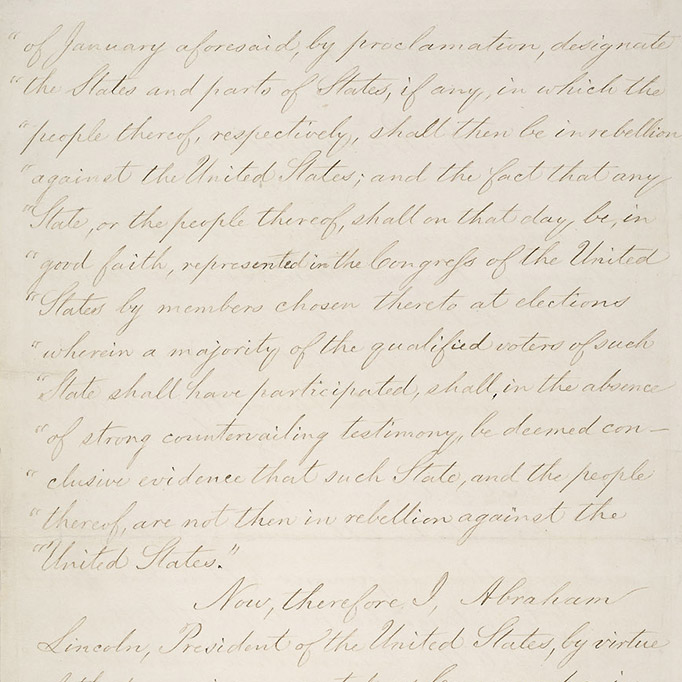 "of January aforesaid, by proclamation, designate
"the States and parts of States, if any, in which the
"people thereof, respectively, shall then be in rebellion
"against the United States; and the fact that any
"State, or the people thereof, shall on that day be, in
"good faith, represented in the Congress of the United
"States by members chosen thereto at elections
"wherein a majority of the qualified voters of such
"State shall have participated, shall, in the absence
"of strong countervailing testimony, be deemed con-
"clusive evidence that such State, and the people
"thereof, are not then in rebellion against the
"United States."
Now, therefore I, Abraham
Lincoln, President of the United States, by virtue